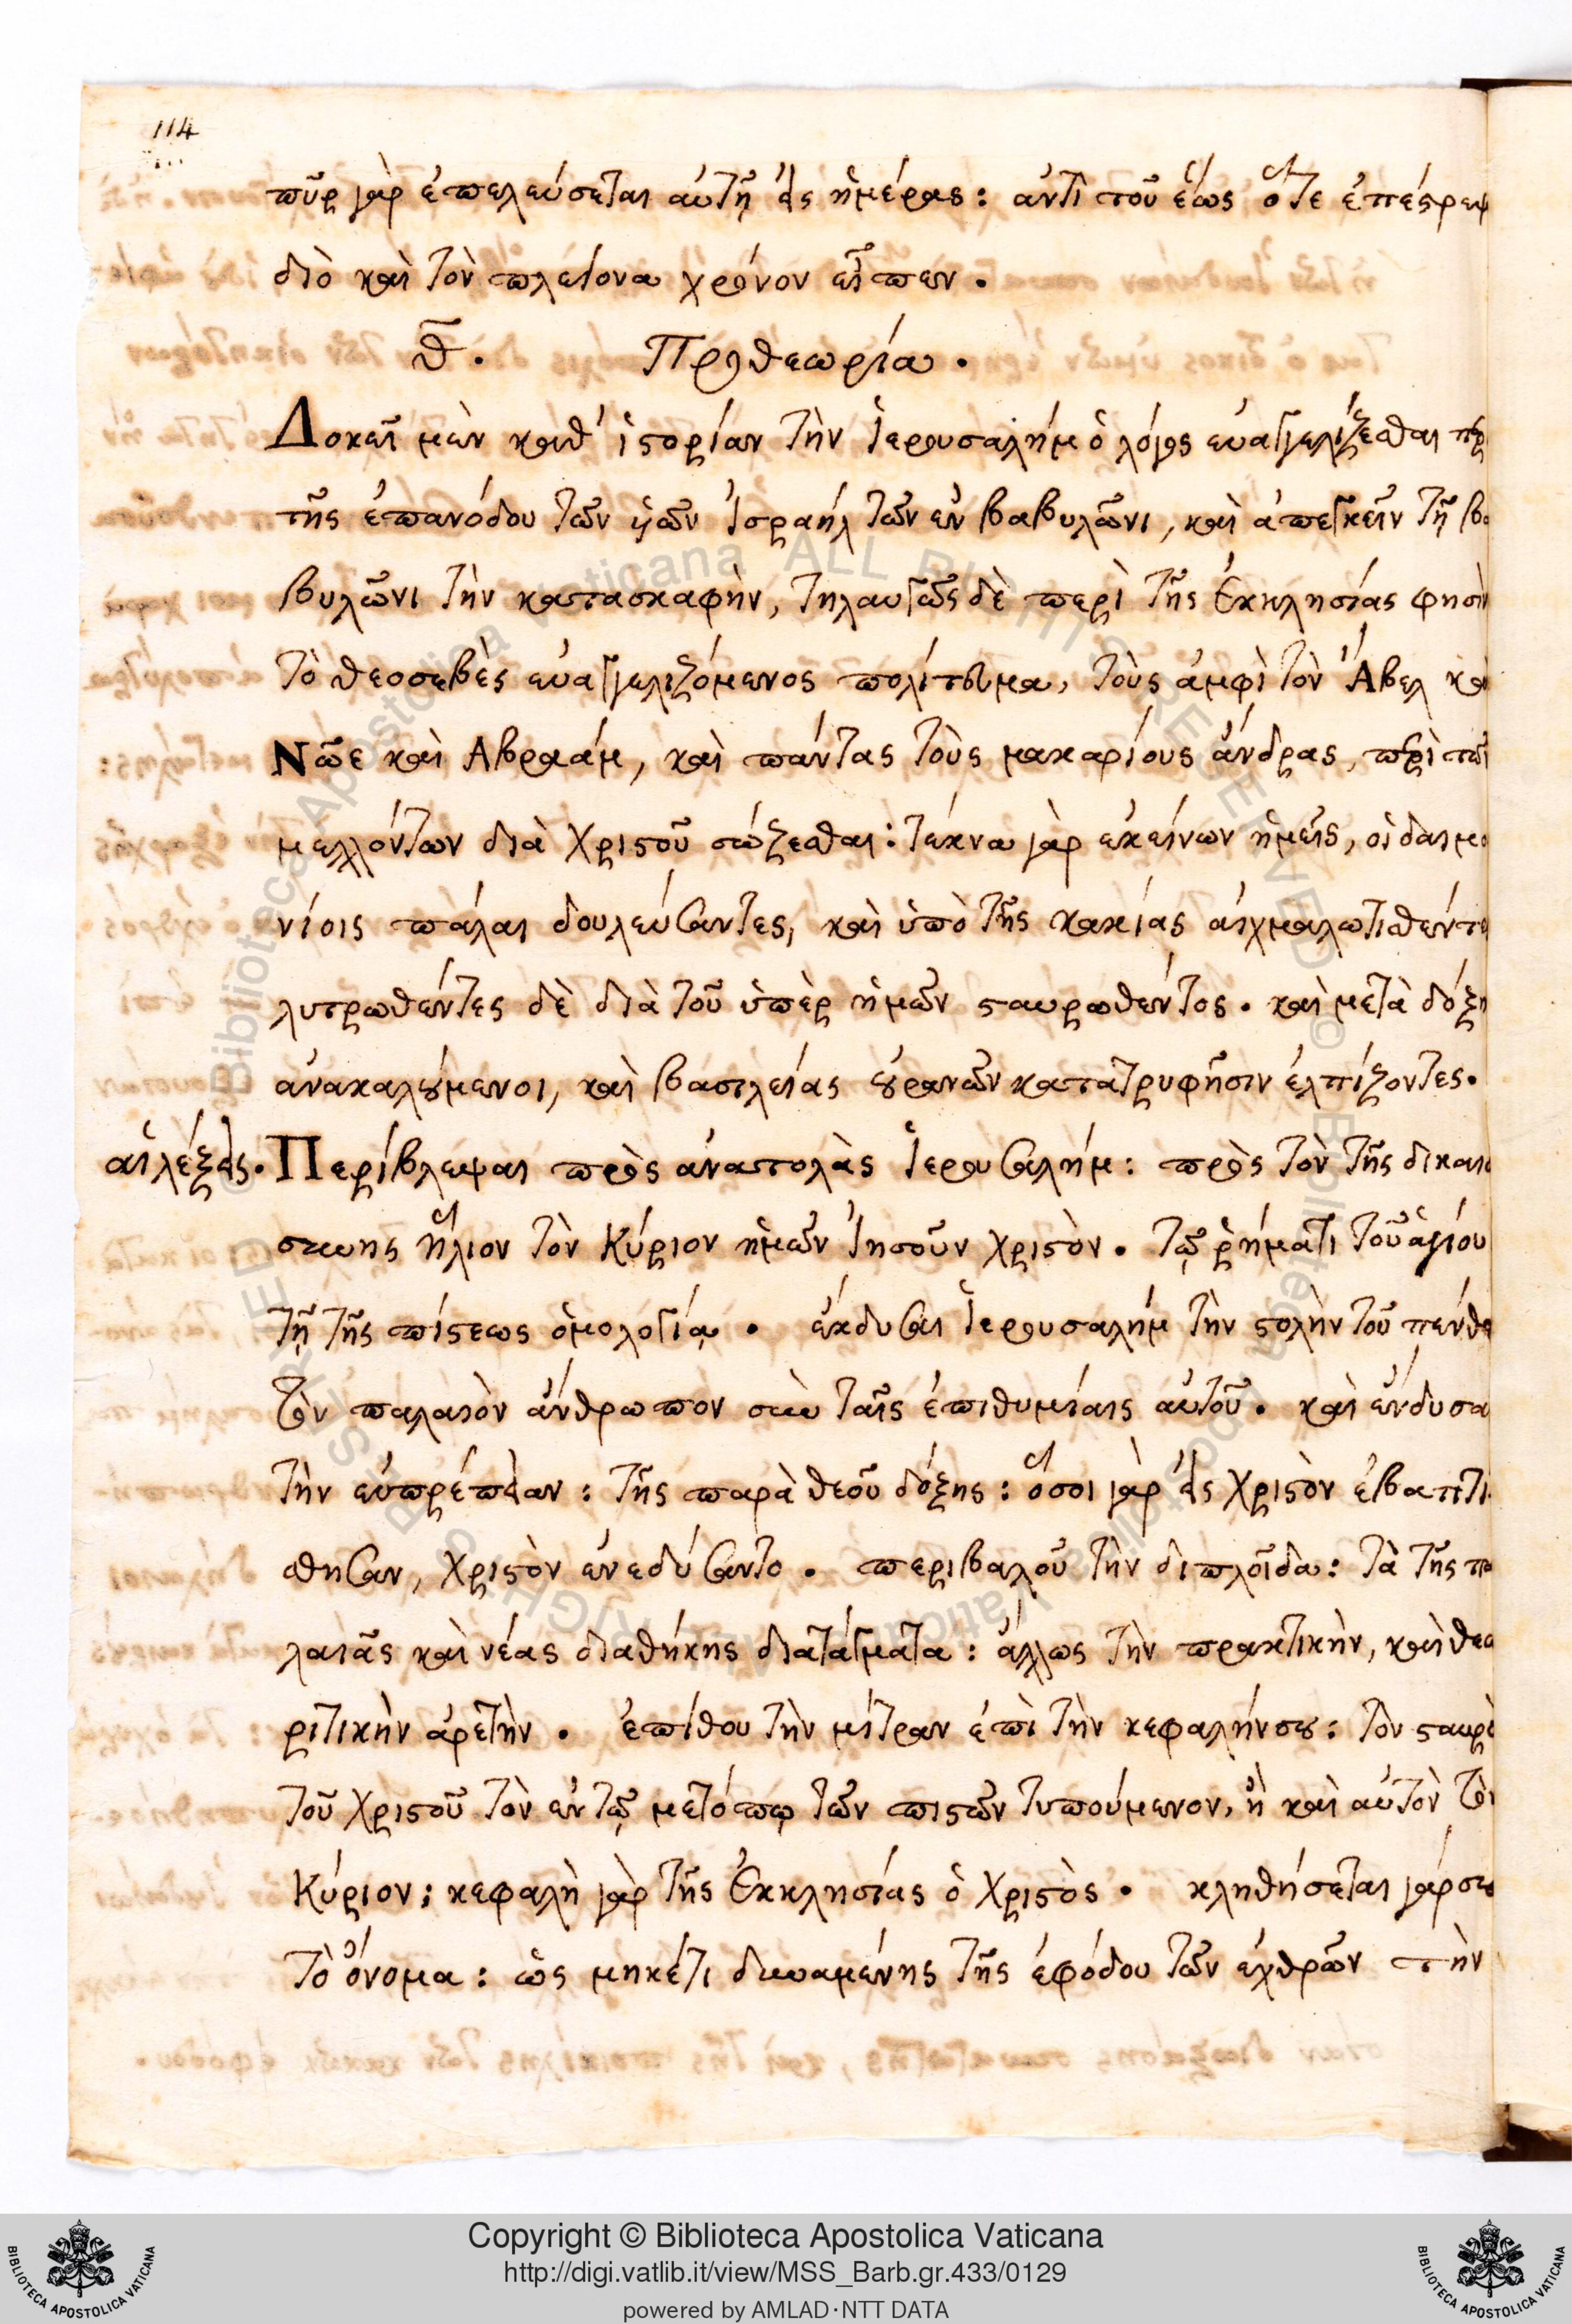 114
πῦρ γὰρ ἐπελεύσεται αὐτῇ εἰς ἡμέρας: ἀντὶ τοῦ ἕως ὅτε ἐπέστρεψ
διὸ καὶ τὸν πλείονα χρόνον εἶπεν.
θ. Προθεωρία.
Δοκεῖ μὲν καθ' ἱστορίαν τὴν Ἱερουσαλήμ ὁ λόγος εὐαγγελίζεσθαι περὶ
τῆς ἐπανόδου τῶν υἱῶν Ἰσραήλ τῶν ἐν βαβυλῶνι, καὶ ἀπειλεῖν τῇ βα
βυλῶνι τὴν κατασκαφὴν, τηλαυγῶς δὲ περὶ τῆς Ἐκκλησίας φησὶν
τὸ θεοσεβὲς εὐαγγελιζόμενος πολίτευμα, τοὺς ἀμφὶ τὸν Ἄβελ καὶ
Νῶε καὶ Αβραάμ, καὶ πάντας τοὺς μακαρίους ἄνδρας, περὶ τῶν
μελλόντων διὰ Χριστοῦ σώζεσθαι: τέκνα γὰρ ἐκείνων ἡμεῖς, οἱ δαιμο
νίοις πάλαι δουλεύσαντες, καὶ ὑπὸ τῆς κακίας αἰχμαλωτισθέντε
λυτρωθέντες δὲ διὰ τοῦ ὑπὲρ ἡμῶν σταυρωθέντος. καὶ μετὰ δόξη
ἀνακαλούμενοι, καὶ βασιλείας οὐρανῶν κατατρυφῆσιν ἐλπίζοντες.
αἱ λέξεις. Περίβλεψαι πρὸς ἀνατολὰς Ἱερουσαλήμ: πρὸς τὸν τῆς δικαιο
σύνης ἥλιον τὸν Κύριον ἡμῶν Ἰησοῦν χριστὸν. τῷ ῥήματι τοῦ ἁγίου
τῇ τῆς πίστεως ὁμολογίᾳ. ἔκδυσαι Ἱερουσαλήμ τὴν στολὴν τοῦ πένθο
τὸν παλαιὸν ἄνθρωπον σὺν ταῖς ἐπιθυμίαις αὐτοῦ. καὶ ἔνδυσα
τὴν εὐπρέπειαν: τῆς παρὰ θεοῦ δόξης: ὅσοι γὰρ εἰς χριστὸν ἐβαπτί
σθησαν, χριστὸν ἐνεδύσαντο. περιβαλοῦ τὴν διπλοΐδα: τὰ τῆς πα
λαιᾶς καὶ νέας διαθήκης διατάγματα: ἄλλως τὴν πρακτικὴν, καὶ θεω
ριτικὴν ἀρετὴν. ἐπίθου τὴν μίτραν ἐπὶ τὴν κεφαλήν σου: τὸν σταυρὸ
τοῦ χριστοῦ τὸν ἐν τῷ μετόπῳ τῶν πιστῶν τυπούμενον, ἢ καὶ αὐτὸν τὸν
Κύριον; κεφαλὴ γὰρ τῆς Ἐκκλησίας ὁ χριστὸς. κληθήσεται γάρ σου
τὸ ὄνομα: ὡς μηκέτι δυναμένης τῆς ἐφόδου τῶν ἐχθρῶν τὴν
Copyright © Biblioteca Apostolica Vaticana
http://digi.vatlib.it/view/MSS_Barb.gr.433/0129
powered by AMLAD·NTT DATA
BIBLIOTECA APOSTOLICA VATICANA
BIBLIOTECA APOSTOLICA VATICANA